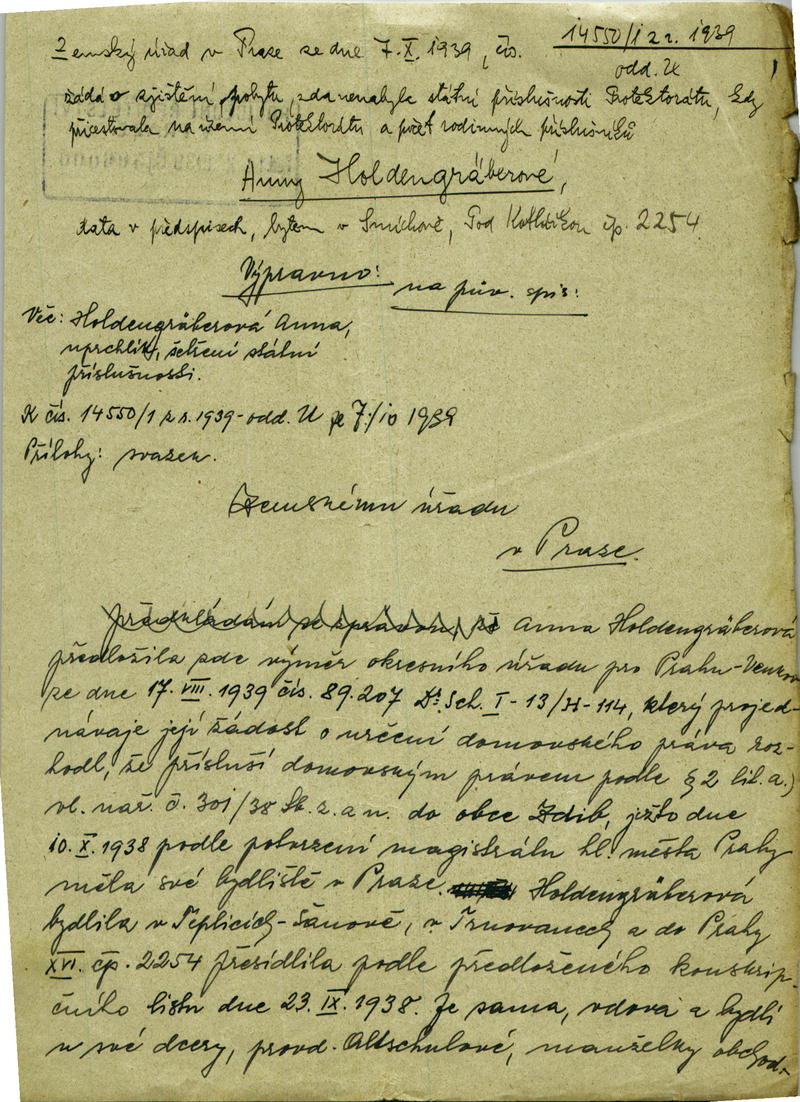 14550/1 z r. 1939
Zemský úřad v Praze ze dne 7.X. 1939, čís.
odd. U
žádá o zjištění pobytu, zda nenabyla státní příslušnosti Protektorátu, kdy
přicestovala na území Protektorátu a počet rodinných příslušníků
Anny Holdengräberové,
data v předspisech, bytem v Smíchově, Pod Kotlářkou čp. 2254
Výpravno:
na pův. spis:
Věc: Holdengräberová Anna,
uprchlík, šetření státní
příslušnosti.
K čís. 14550/1 z r. 1939 - odd. U ze 7./10 1939
Přílohy: svazek.
Zemskému úřadu
v Praze.
předkládám se zprávou, že Anna Holdengräberová
předložila zde výměr okresního úřadu pro Prahu-Venkov
ze dne 17. VIII. 1939 čís. 89.207 Dr. Sch. I - 13/H - 114, který projed-
návaje její žádost o určení domovského práva roz-
hodl, že přísluší domovským právem podle § 2 lit. a.)
vl. nař. č. 301/38 Sb. z. a n. do obce Zdib, ježto dne
10. X. 1938 podle potvrzení magistrátu hl. města Prahy
měla své bydliště v Praze. Holdengräberová
bydlila v Teplicích-Šanově, v Trnovanech a do Prahy
XVI. čp. 2254 přesídlila podle předloženého konskrip-
čního listu dne 23. IX. 1938. Je sama, vdova a bydlí
u své dcery, provd. Altschulové, manželky obchod-